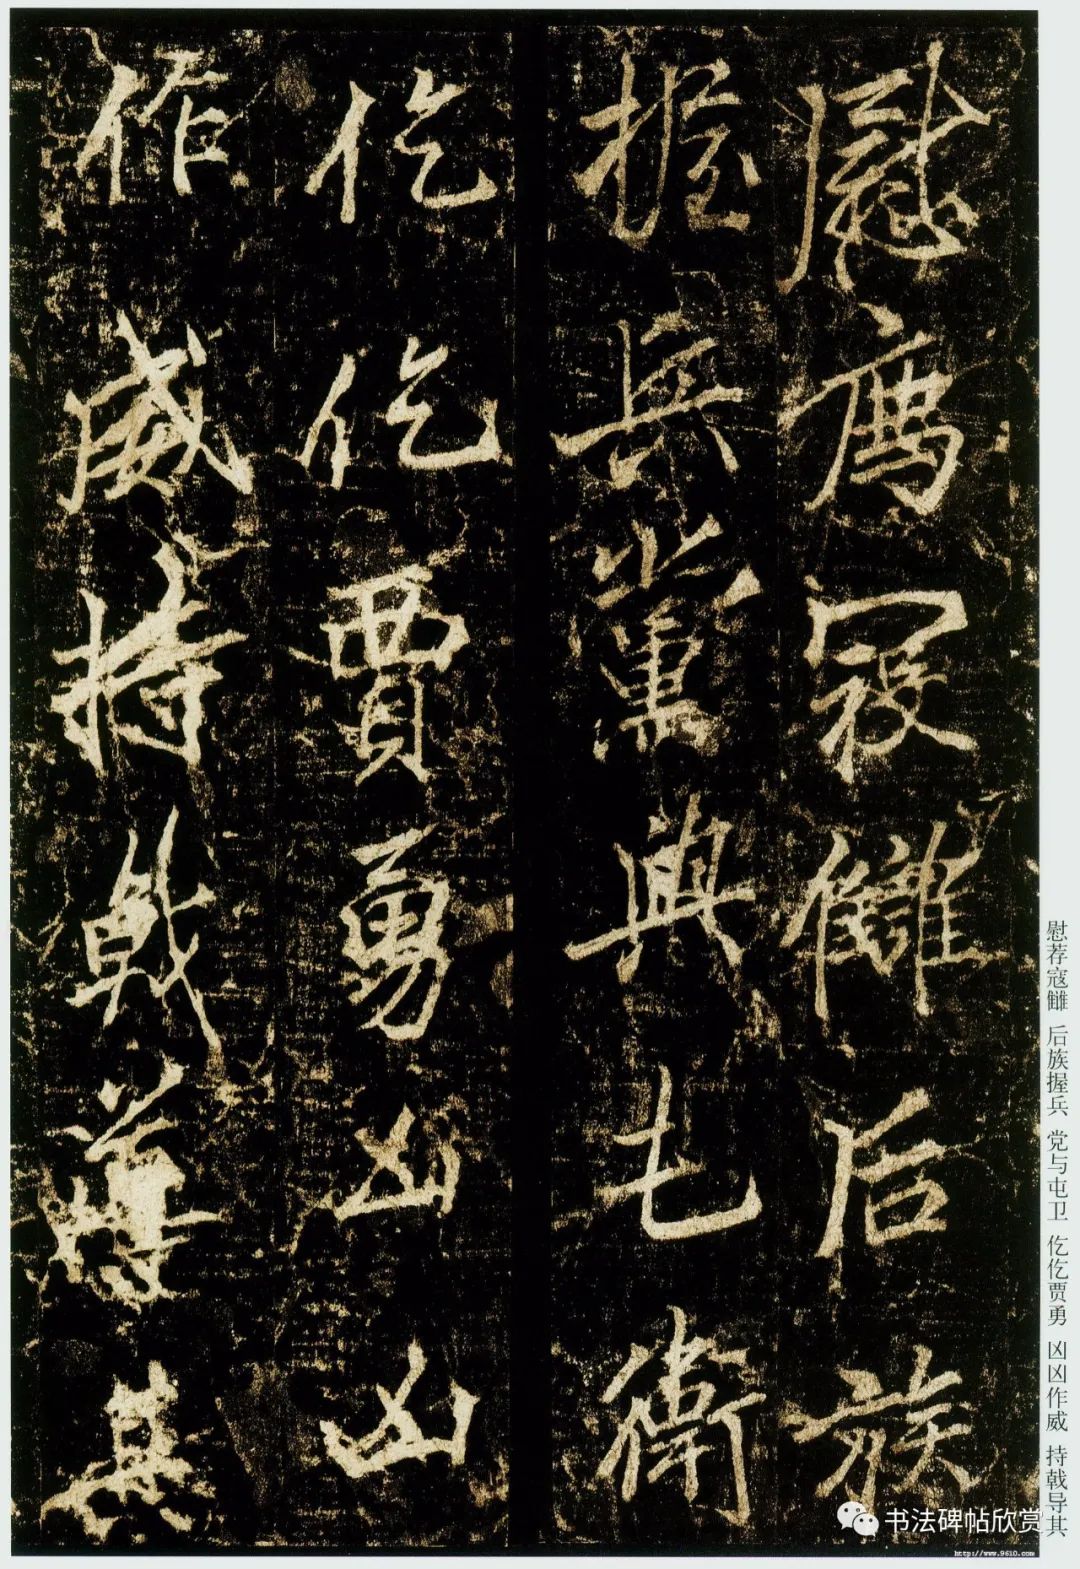 慰薦寇讎后族
握兵黨與屯衛
仡仡賈勇凶凶
作威持戟導其
慰荐寇雠 后族握兵 党与屯卫 仡仡贾勇 凶凶作威 持戟导其
书法碑帖欣赏
http://www.9610.com